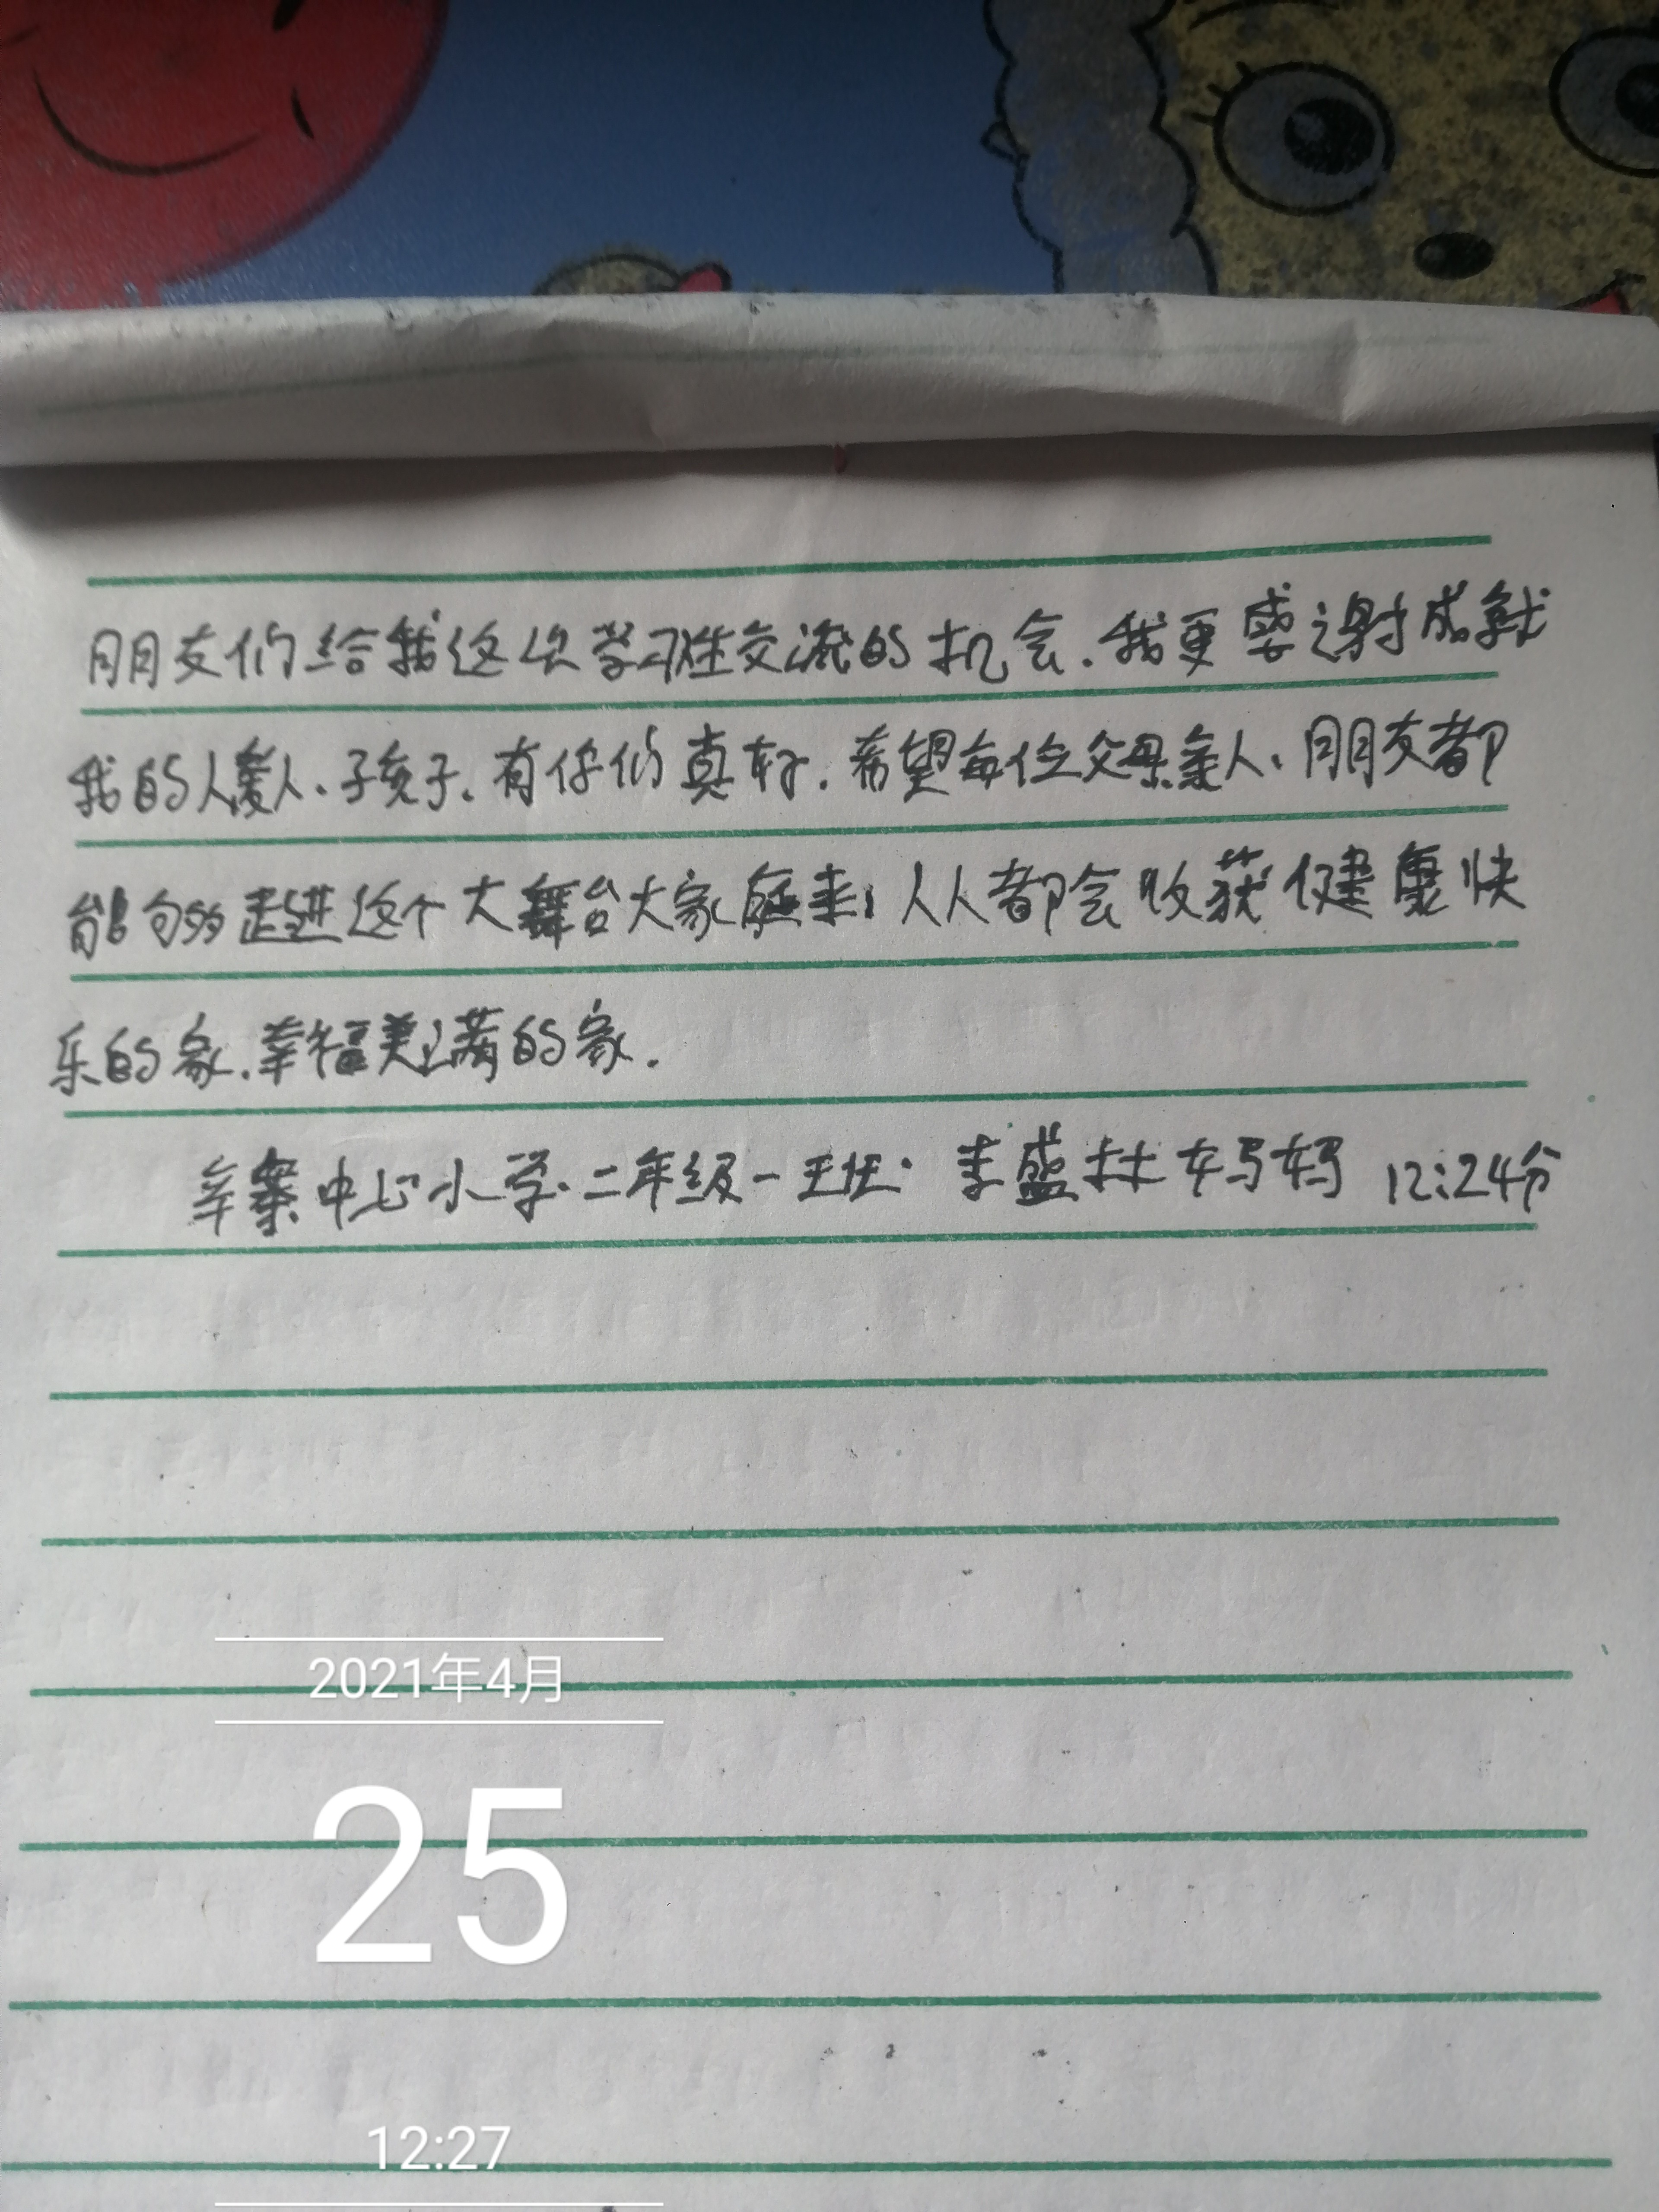 朋友们给我这次学习性交流的机会.我更要感谢成就
我的人爱人.子孩子.有你们真好.希望每位父母亲人.朋友都
能够走进这个大舞台大家庭来,人人都会收获健康快
乐的家.幸福美满的家.
辛寨中心小学.二年级一班. 李盛林妈妈 12:24分
2021年4月
25
12:27